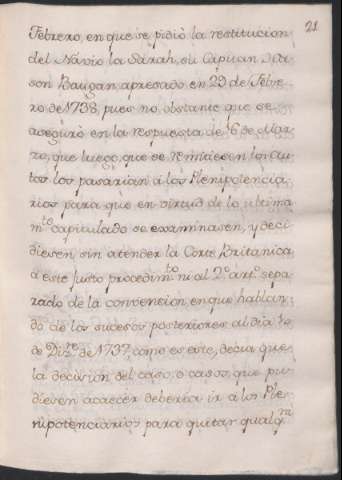 21
Febrero, en que se pidió la restitucion
del Navio la Sarah, su Capitan Ja-
son Baugan apresado en 29 de Febre-
ro de 1738, pues no obstante que se
aseguró en la respuesta de 6 de Mar-
zo, que luego, que se remitiesen los au-
tos los pasarian á los Plenipotencia-
rios para que en virtud de lo ultima
m.te capitulado se examinasen, y deci
diesen sin atender la Corte Britanica
á este justo procedim.to ni al 2.º art.º sepa
rado de la convencion, en que hablan-
do de los sucesos posteriores al dia 10
de Diz.re de 1737 como es este, decia que
la decision del caso, o casos, que pu-
diesen acaecer deberia ir a los Ple-
nipotenciarios para quitar qualq.r